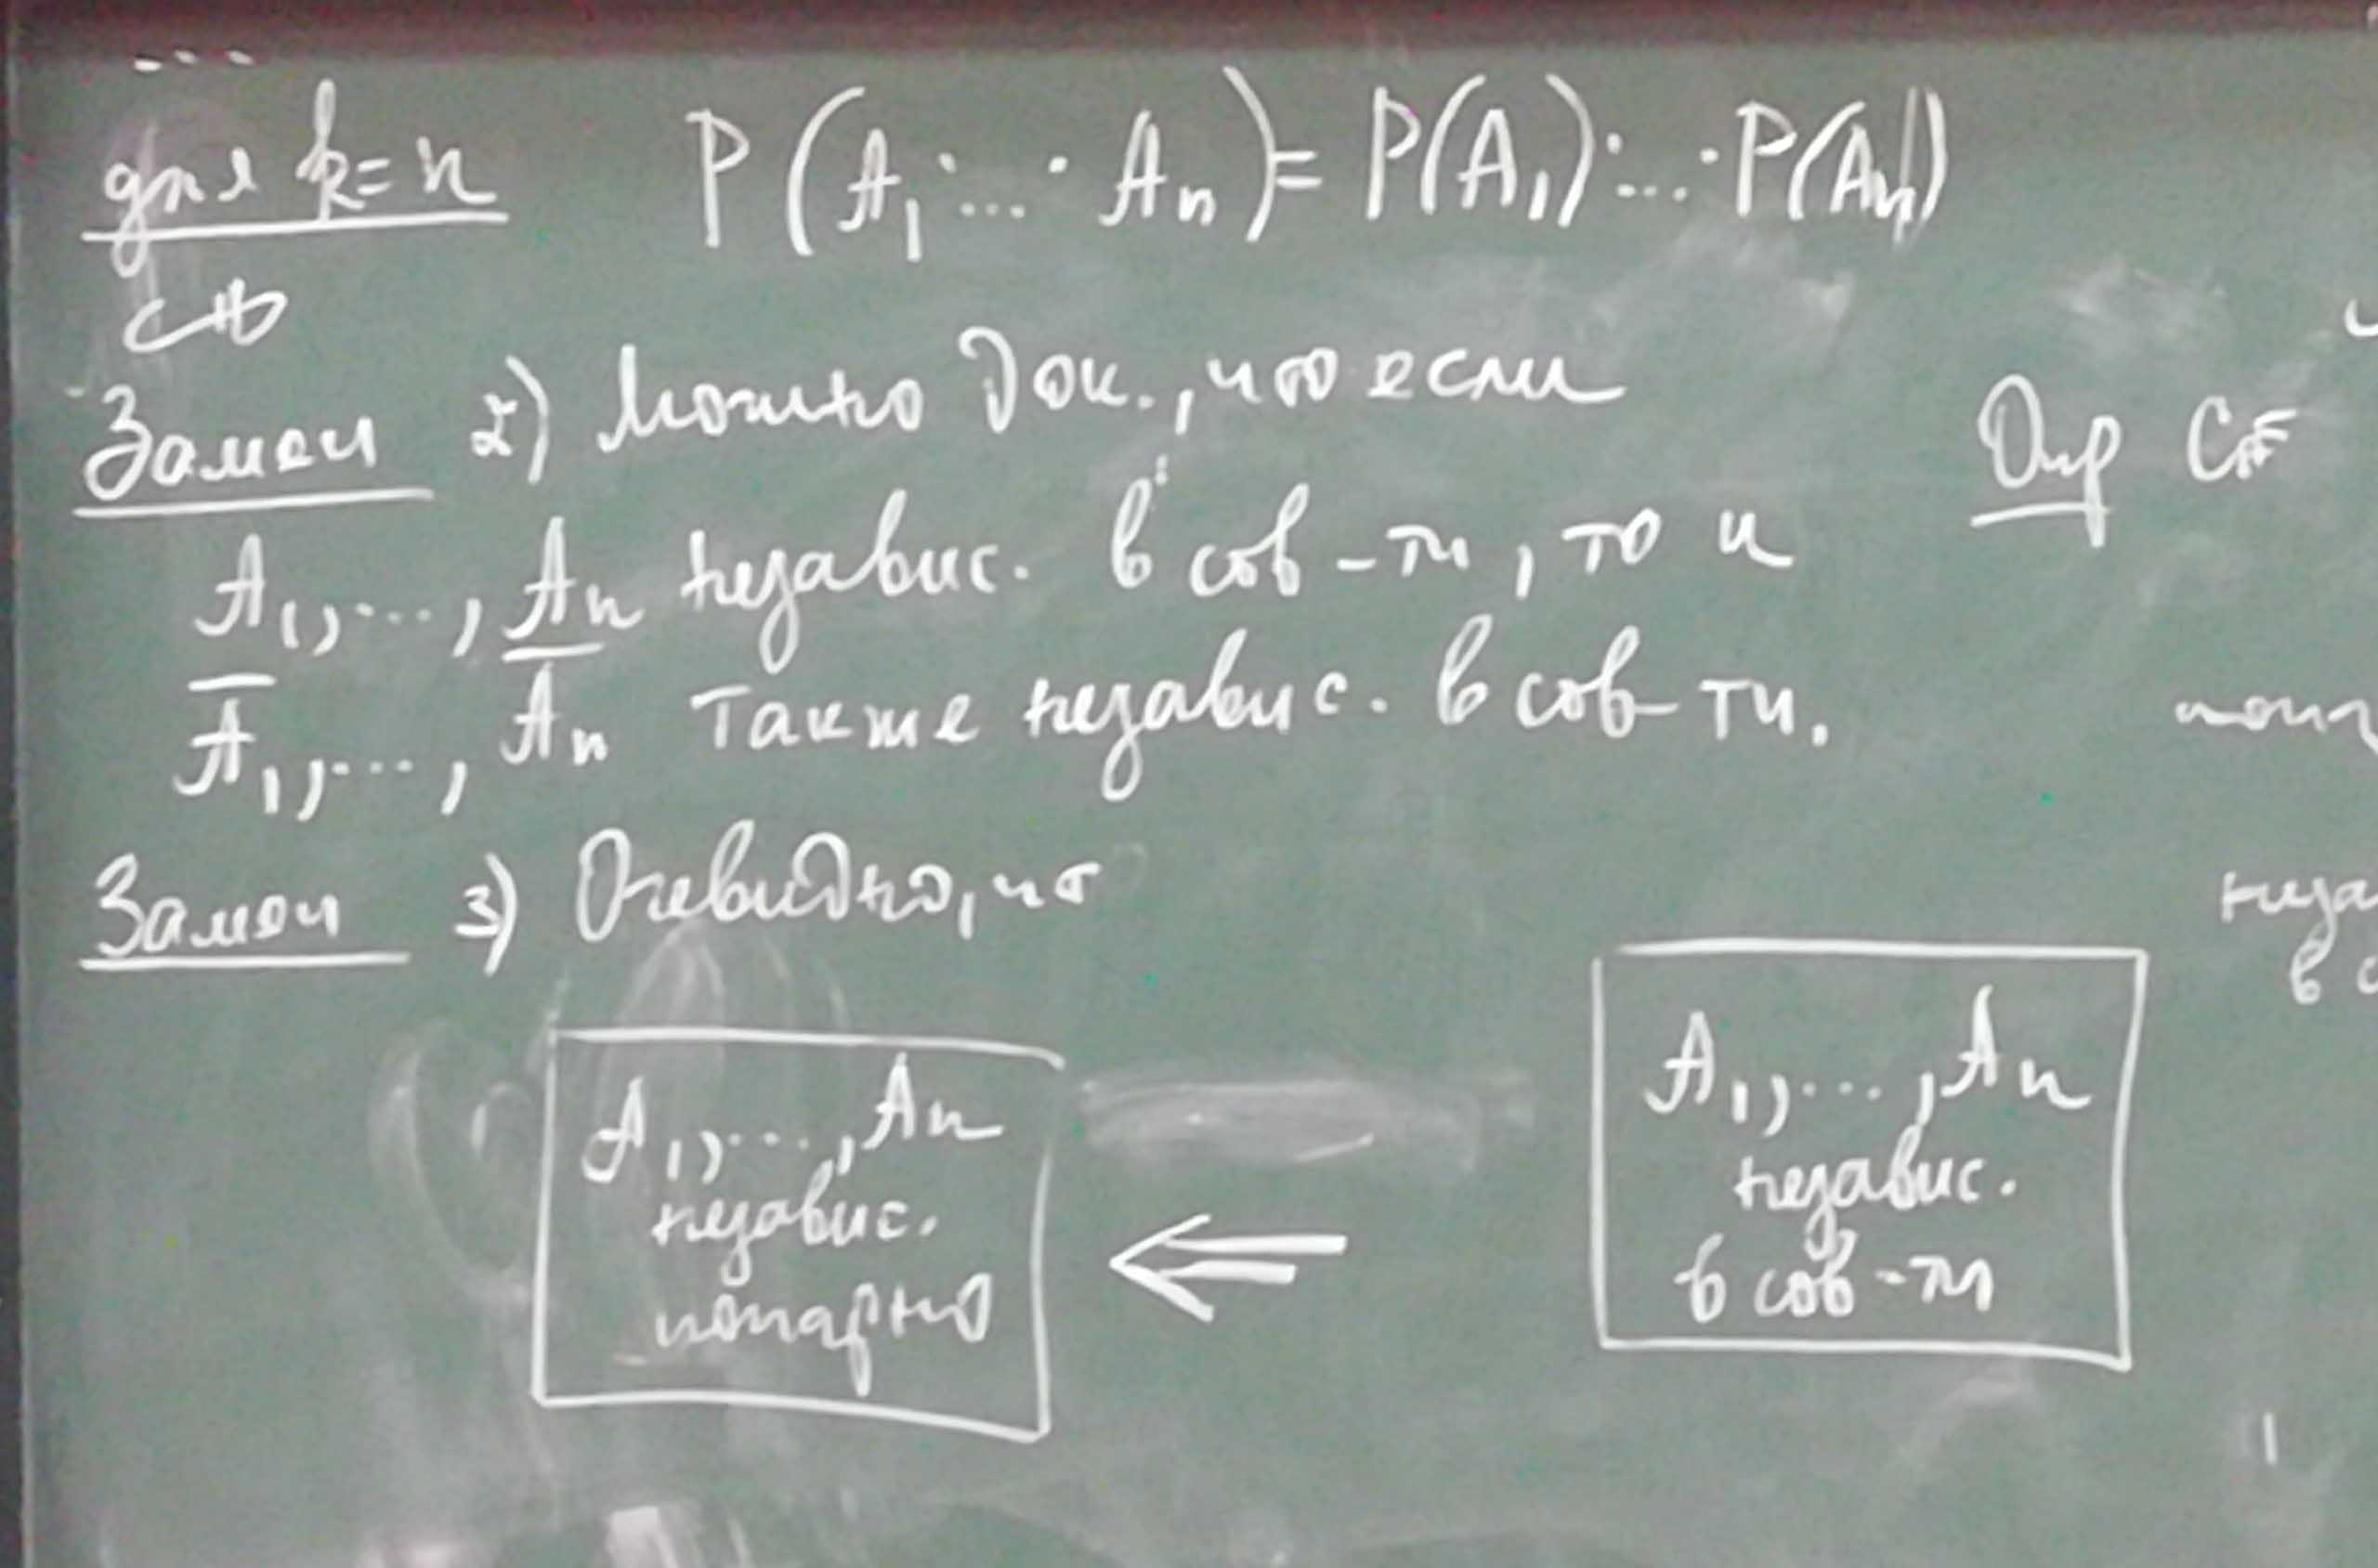 ...
для k=n P(A₁·...·Aₙ)=P(A₁)·...·P(Aₙ)
Замеч 2) Можно док., что если
A₁,...,Aₙ независ. в сов-ти, то и
A̅₁,...,A̅ₙ также независ. в сов-ти.
Замеч 3) Очевидно, что
A₁,...,Aₙ
независ.
попарно
⇐
A₁,...,Aₙ
независ.
в сов-ти
Опр